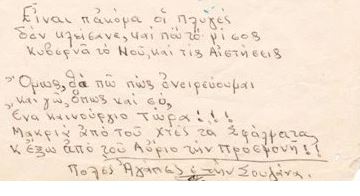 Είναι π'ακόμα οι Πληγές
δεν κλείσανε, και πώτό μίσος
Κυβερνά το Νού, και τις Αιστήσεις
Όμως, θα πώ πώς ονειρεύουμαι
και γώ, όπως και σύ,
Ένα καινούργιο Τώρα!!!
Μακριά από του Χτές τα Σφάλματα
κ έξω από του Αύριο την Προσμονή!!
Πολές Αγάπες στην Σουζάνα.